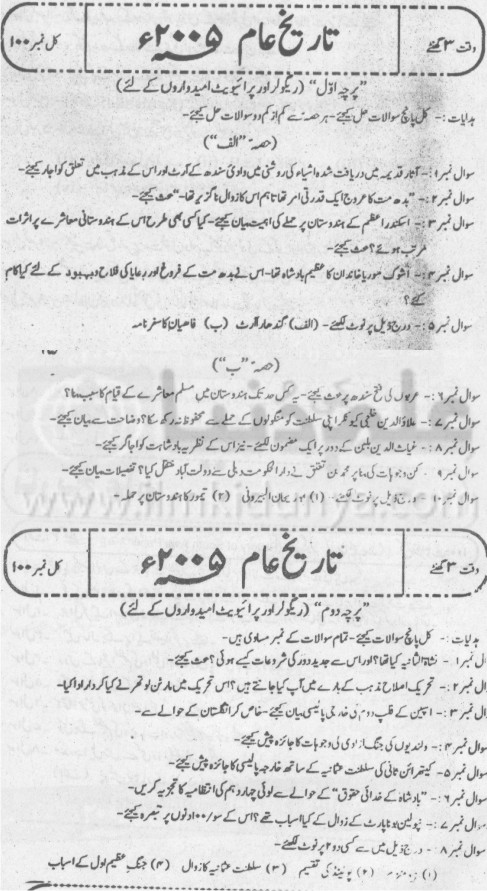 وقت ۳ گھنٹے
تاریخ عام ۲۰۰۵ء
کل نمبر ۱۰۰
"پرچہ اوّل" (ریگولر اور پرائیویٹ امیدواروں کے لئے)
ہدایات :- کل پانچ سوالات حل کیجئے۔ ہر حصہ سے کم از کم دو سوالات حل کیجئے۔
(حصہ "الف")
سوال نمبر ۱ :- آثار قدیمہ میں دریافت شدہ اشیاء کی روشنی میں وادی سندھ کے آرٹ اور اس کے مذہب میں تعلق کو اجاگر کیجئے۔
سوال نمبر ۲ :- "بدھ مت کا عروج ایک قدرتی امر تھا تاہم اس کا زوال ناگزیر تھا۔" بحث کیجئے۔
سوال نمبر ۳ :- اسکندر اعظم کے ہندوستان پر حملے کی اہمیت بیان کیجئے۔ کیا کسی بھی طرح اس کے ہندوستانی معاشرے پر اثرات
مرتب ہوئے؟ بحث کیجئے۔
سوال نمبر ۴ :- اشوک موریا خاندان کا عظیم بادشاہ تھا۔ اس نے بدھ مت کے فروغ اور رعایا کی فلاح و بہبود کے لئے کیا کام
کئے؟
سوال نمبر ۵ :- درج ذیل پر نوٹ لکھئے۔ (الف) گندھارا آرٹ (ب) فاھیان کا سفر نامہ
(حصہ "ب")
سوال نمبر ۶ :- عربوں کی فتح سندھ پر بحث کیجئے۔ یہ کس حد تک ہندوستان میں مسلم معاشرے کے قیام کا سبب بنا؟
سوال نمبر ۷ :- علاؤ الدین خلجی کیونکر اپنی سلطنت کو منگولوں کے حملے سے محفوظ نہ رکھ سکا؟ وضاحت سے بیان کیجئے۔
سوال نمبر ۸ :- غیاث الدین بلبن کے دور پر ایک مضمون لکھئے۔ نیز اس کے نظریہ بادشاہت کو اجاگر کیجئے۔
سوال نمبر ۹ :- کن وجوہات کی بناء پر محمد بن تغلق نے دارالحکومت دہلی سے دولت آباد منتقل کیا؟ تفصیلات بیان کیجئے۔
سوال نمبر ۱۰ :- درج ذیل پر نوٹ لکھئے۔ (۱) ابوریحان البیرونی (۲) تیمور کا ہندوستان پر حملہ۔
www.ilmkidunya.com
وقت ۳ گھنٹے
تاریخ عام ۲۰۰۵ء
کل نمبر ۱۰۰
"پرچہ دوم" (ریگولر اور پرائیویٹ امیدواروں کے لئے)
ہدایات :- کل پانچ سوالات کیجئے۔ تمام سوالات کے نمبر مساوی ہیں۔
ال نمبر ۱ :- نشاۃ الثانیہ کیا تھا؟ اور اس سے جدید دور کی شروعات کیسے ہوئی؟ بحث کیجئے۔
ال نمبر ۲ :- تحریک اصلاح مذہب کے بارے میں آپ کیا جانتے ہیں؟ اس تحریک میں مارٹن لوتھر نے کیا کردار ادا کیا۔
ال نمبر ۳ :- اسپین کے فلپ دوم کی خارجی پالیسی بیان کیجئے۔ خاص کر انگلستان کے حوالے سے۔
سوال نمبر ۴ :- ولندیزیوں کی جنگ آزادی کی وجوہات کا جائزہ پیش کیجئے۔
سوال نمبر ۵ :- کیتھرائن ثانی کی سلطنت عثمانیہ کے ساتھ خارجہ پالیسی کا جائزہ پیش کیجئے۔
سوال نمبر ۶ :- "بادشاہ کے خدائی حقوق" کے حوالے سے لوئی چہار دہم کی انتظامیہ کا تجزیہ کریں۔
سوال نمبر ۷ :- نپولین بوناپارٹ کے زوال کے کیا اسباب تھے؟ اس کے سو/۱۰۰ دنوں پر تبصرہ کیجئے۔
سوال نمبر ۸ :- درج ذیل میں سے کسی دو ۲ پر نوٹ لکھئے۔
(۱) (۲) پولینڈ کی تقسیم (۳) سلطنت عثمانیہ کا زوال (۴) جنگ عظیم اول کے اسباب